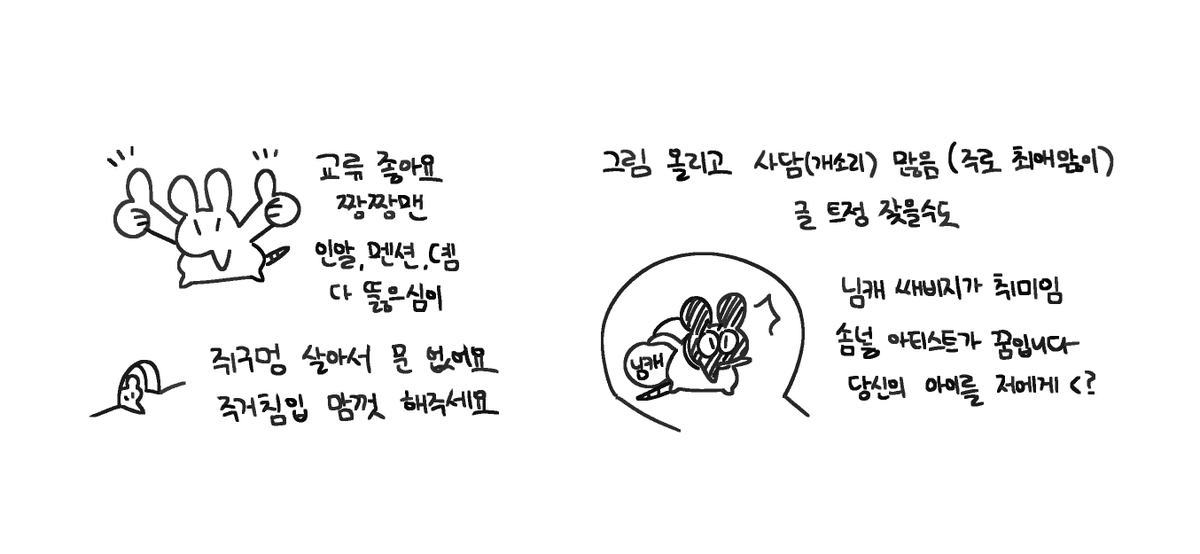 교류 좋아요
짱짱맨
인알, 멘션, 디엠
다 뚫은심이
쥐구멍 살아서 문 없어요
주거침입 맘껏 해주세요
그림 몰리고 사담(개소리) 많음 (주로 최애앓이)
글 트정 잦을수도
님캐
님캐 쌔비지가 취미임
솜널 아티스트가 꿈입니다
당신의 아이를 저에게 <?